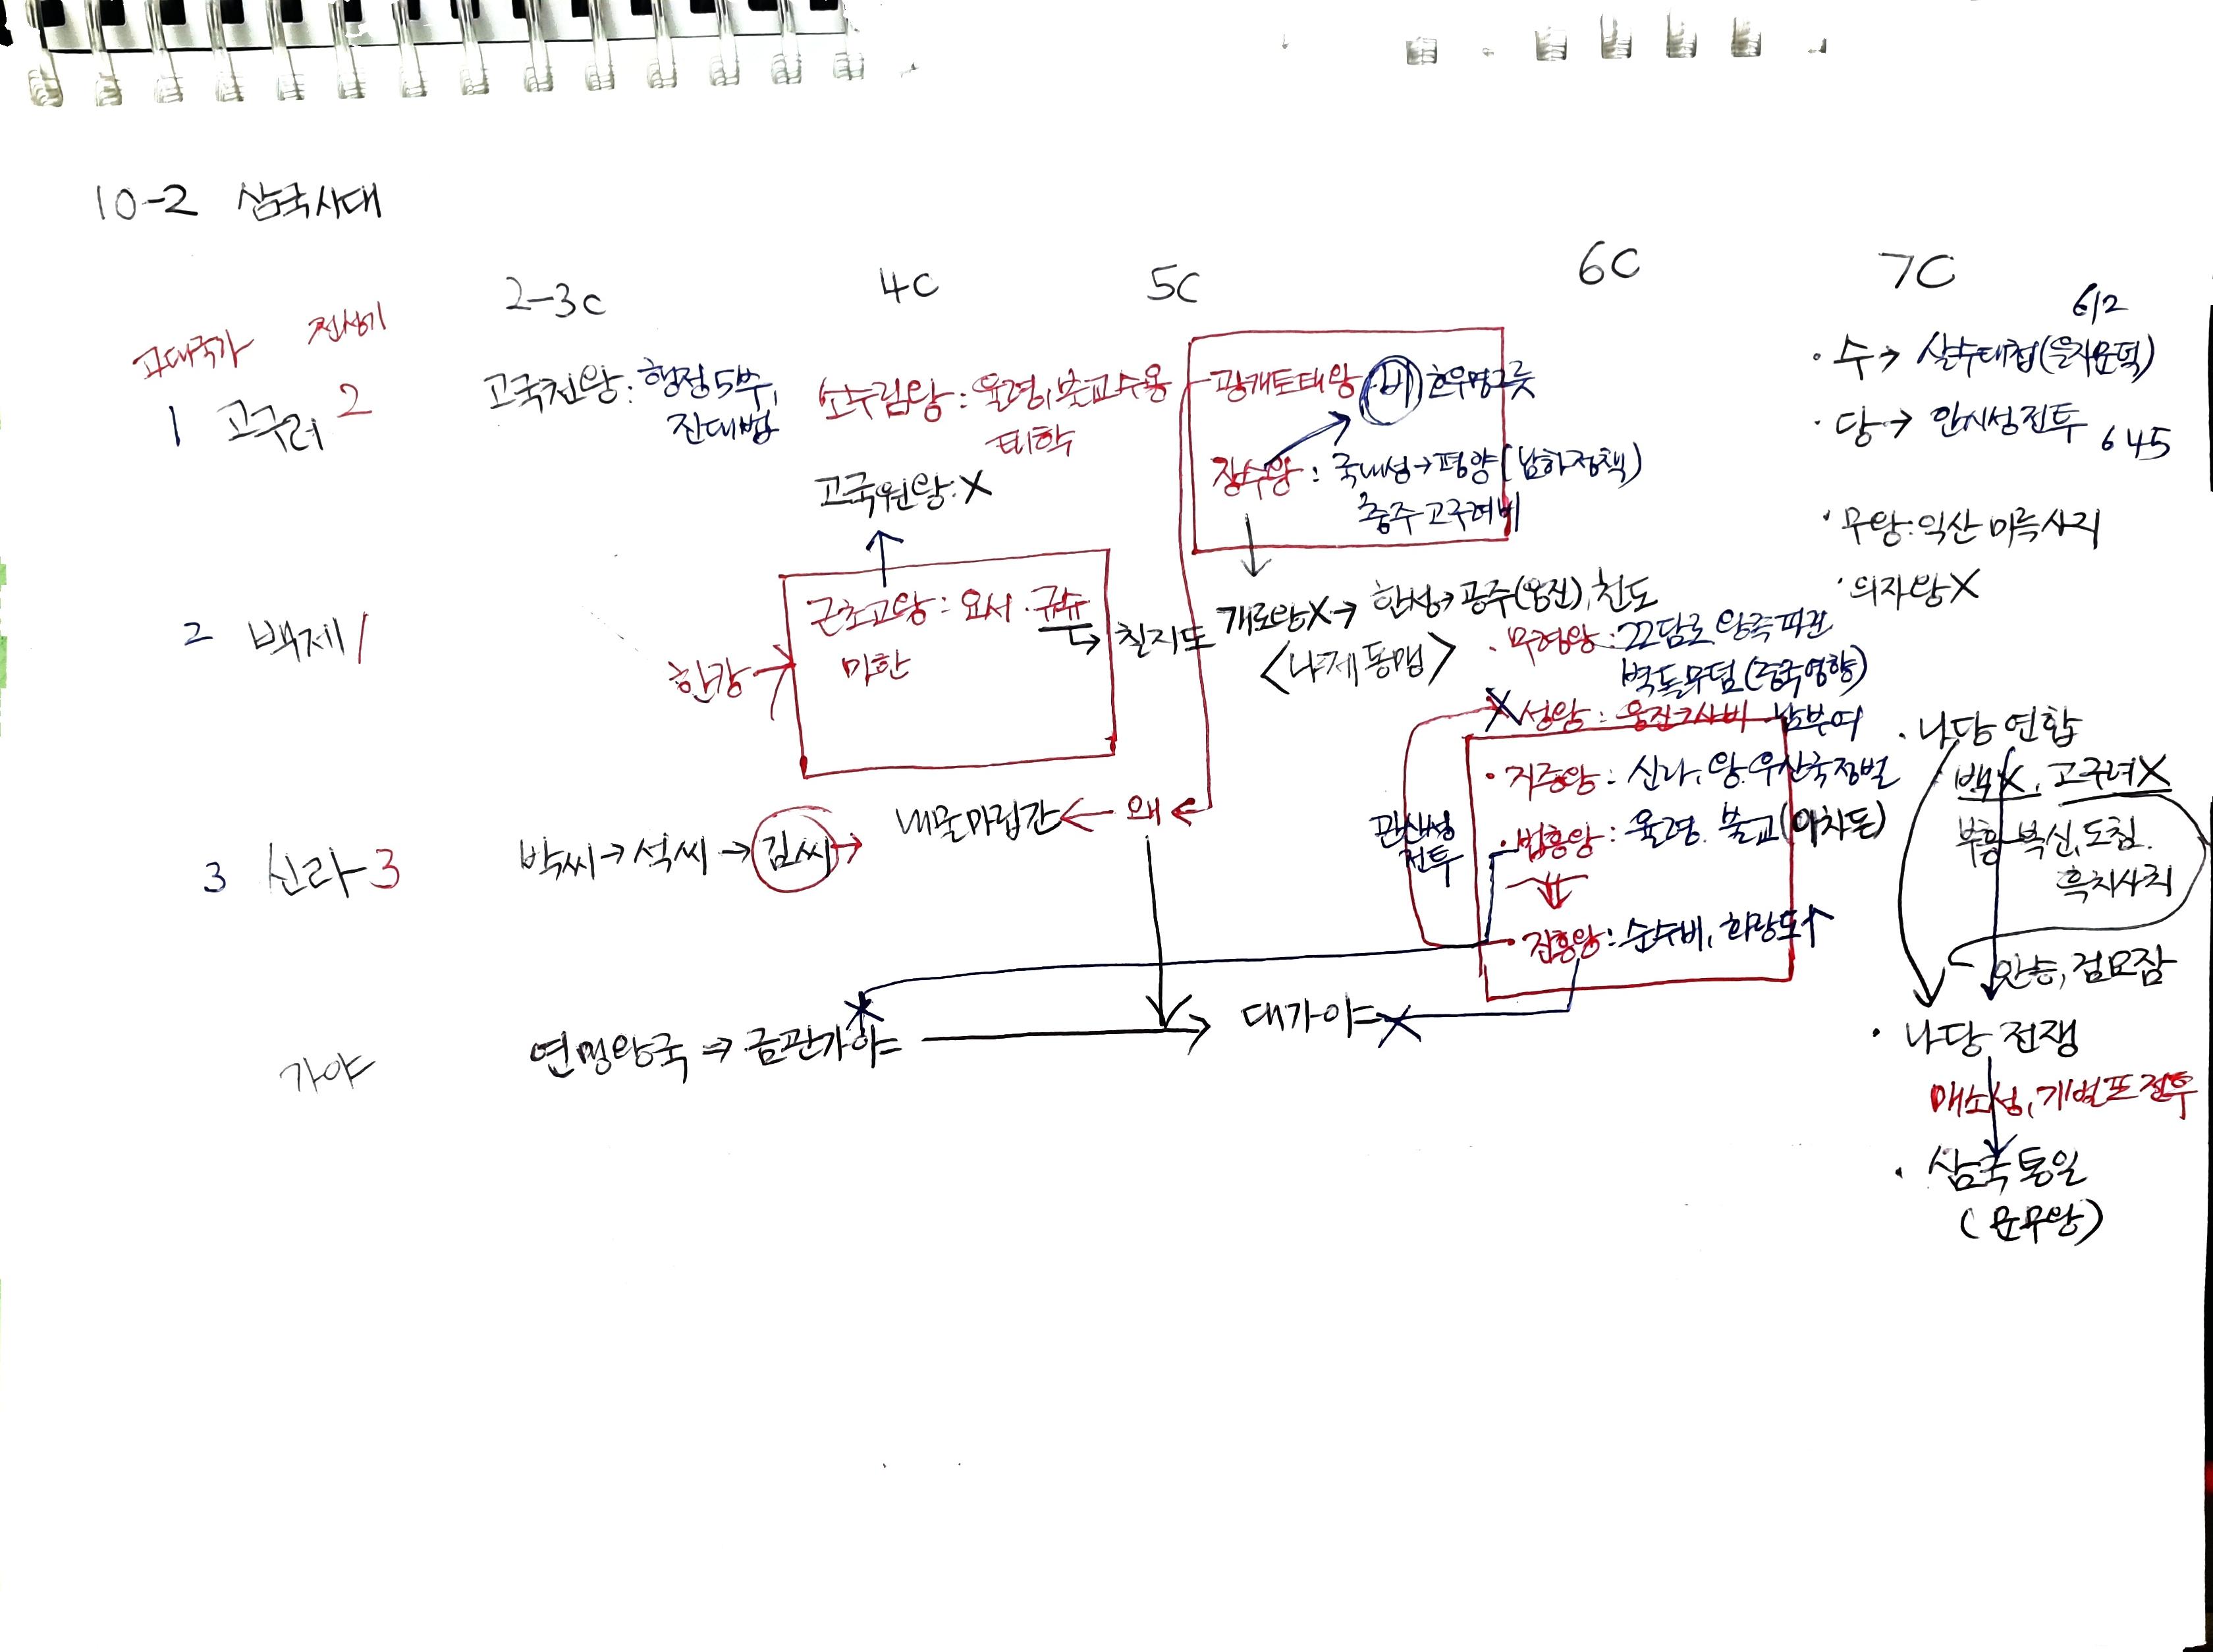 10-2 삼국시대
2-3c 4c 5c 6C 7C
고대국가 전성기
1 고구려 2
고국천왕: 행정5부,
진대법
소수림왕: 율령, 불교수용
태학
고국원왕: X
광개토태왕 비 호우명그릇
장수왕: 국내성→평양(남하정책)
충주고구려비
612
· 수→ 살수대첩(을지문덕)
· 당→ 안시성전투 645
2 백제 1
한강→
근초고왕: 요서·규슈
마한
→ 칠지도
개로왕X→ 한성→공주(웅진), 천도
<나제동맹>
· 무령왕: 22담로 왕족파견
벽돌무덤(중국영향)
X 성왕: 웅진→사비 남부여
· 무왕: 익산 미륵사지
· 의자왕X
3 신라 3
박씨→석씨→김씨→
내물마립간← 왜 ←
관산성
전투
· 지증왕: 신라, 왕. 우산국정벌
· 법흥왕: 율령. 불교(이차돈)
· 진흥왕: 순수비, 화랑도↑
· 나당 연합
백X, 고구려X
부흥 복신, 도침.
흑치상지
안승, 검모잠
· 나당 전쟁
매소성, 기벌포 전투
· 삼국통일
(문무왕)
가야
연맹왕국 → 금관가야 → 대가야 X